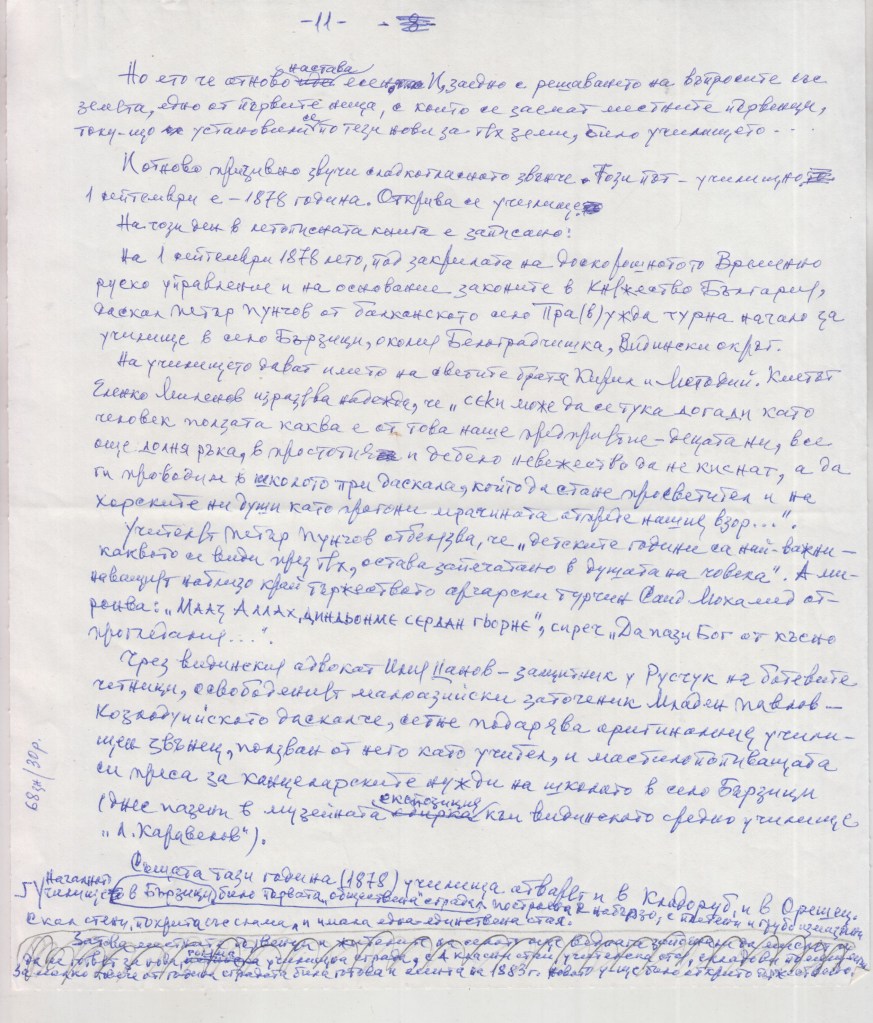 -11-
Но ето че отново настава есен. И, заедно с решаването на въпросите със
земята, едно от първите неща, с които се заемат местните първенци,
току-що установили се по тези нови за тях земи, било училището...
И отново призивно звучи сладкогласното звънче. Този път - училищно.
1 септември е - 1878 година. Открива се училище.
На този ден в летописната книга е записано:
На 1 септемврий 1878 лето, под закрилата на доскорошното Временно
руско управление и на основание законите в Княжество България,
даскал Петър Пунчов от балканското село Пра(в)ужда турна начало за
училище в село Бързици, околия Белоградчишка, Видински окръг.
На училището дават името на светите братя Кирил и Методий. Кметът
Еленко Миленов изразява надежда, че „секи може да се тука догади като
человек ползата каква е от това наше предприятие - децата ни, все
още долня ръка, в простотия и дебело невежество да не киснат, а да
ги проводим в школото при даскала, който да стане просветител и на
хорските ни души като прогони мрачината отпреде нашия взор...".
Учителят Петър Пунчов отбелязва, че „детските години са най-важни -
каквото се види през тях, остава запечатано в душата на човека". А ми-
наващият наблизо край тържеството арчарски турчин Саид Мохамед от-
ронва: „Мааз Аллах, динльонме сердан гьорне", сиреч „Да пази Бог от късно
прогледание...".
Чрез видинския адвокат Илия Цанов - защитник у Русчук на ботевите
четници, освободеният малоазийски заточеник Младен Павлов -
Козлодуйското даскалче, сетне подарява оригиналния учили-
щен звънец, ползван от него като учител, и мастилопопиващата
си преса за канцеларските нужди на школото в село Бързици
(днес пазени в музейната експозиция към видинското средно училище
„Л. Каравелов").
68 ж/30р.
Същата тази година (1878) училища отварят и в Кладоруб, и в Орешец.
Началното училище в Бързици било първата „обществена" сграда, построена набързо, с плетени и грубо измазани
с кал стени, покрита със слама, и имала една-единствена стая.